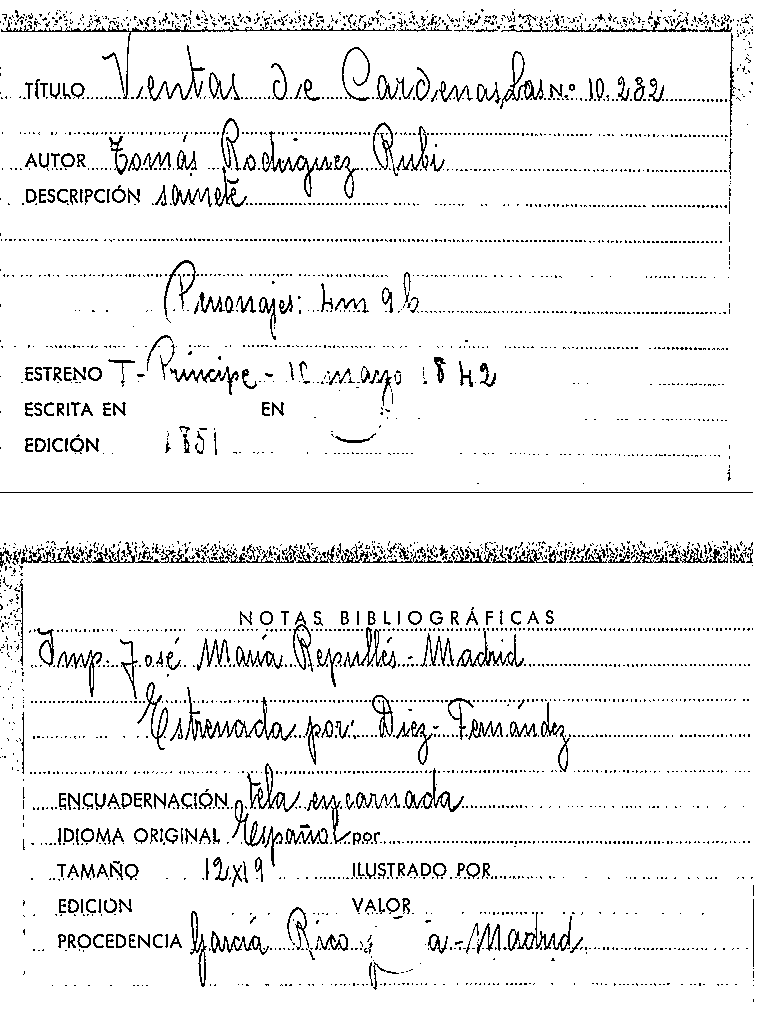 TÍTULO Ventas de Cardenas, Las N.º 10.232
AUTOR Tomás Rodriguez Rubi
DESCRIPCIÓN sainete
Personajes: 4m 9h
ESTRENO T- Principe - 10 mayo 1842
ESCRITA EN EN
EDICIÓN 1851
NOTAS BIBLIOGRÁFICAS
Imp. José María Repullés - Madrid
Estrenada por: Diez - Fernández
ENCUADERNACIÓN tela encarnada
IDIOMA ORIGINAL Español por
TAMAÑO 12x19 ILUSTRADO POR
EDICION VALOR
PROCEDENCIA García Rico y a - Madrid